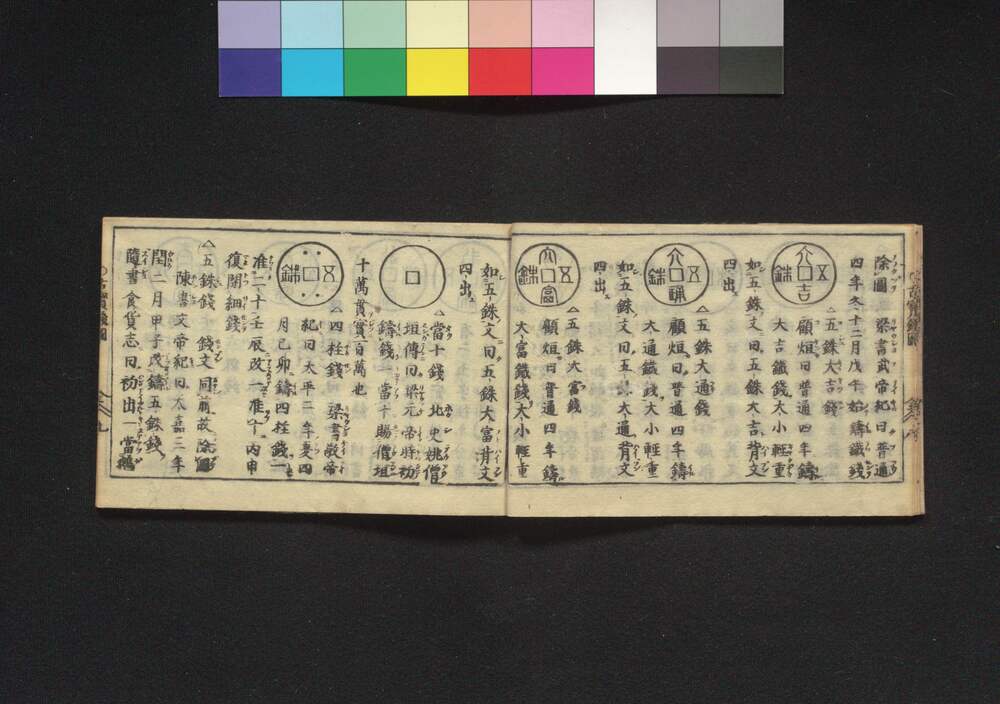 除圖 梁書武帝紀曰普通
四年冬十二月戊午始鑄鐵錢
△五銖大吉錢
顧烜曰普通四年鑄
大吉鐵錢大小輕重
如五銖文曰五銖大吉背文
四出
△五銖大通錢
顧烜曰普通四年鑄
大通鐵錢大小輕重
如五銖文曰五銖大通背文
四出
△五銖大富錢
顧烜曰普通四年鑄
大富鐵錢大小輕重
如五銖文曰五銖大富背文
四出
△當十錢 北史姚僧
垣傳曰梁元帝時初
鑄錢一當十賜僧垣
十萬貫實百萬也
△四柱錢 梁書敬帝
紀曰太平二年夏四
月己卯鑄四柱錢一
准二十壬辰改一准十丙申
復閉細錢
△五銖錢 錢文同前故除圖
陳書文帝紀曰天嘉三年
閏二月甲子改鑄五銖錢
隨書食貨志曰初出一當鵝